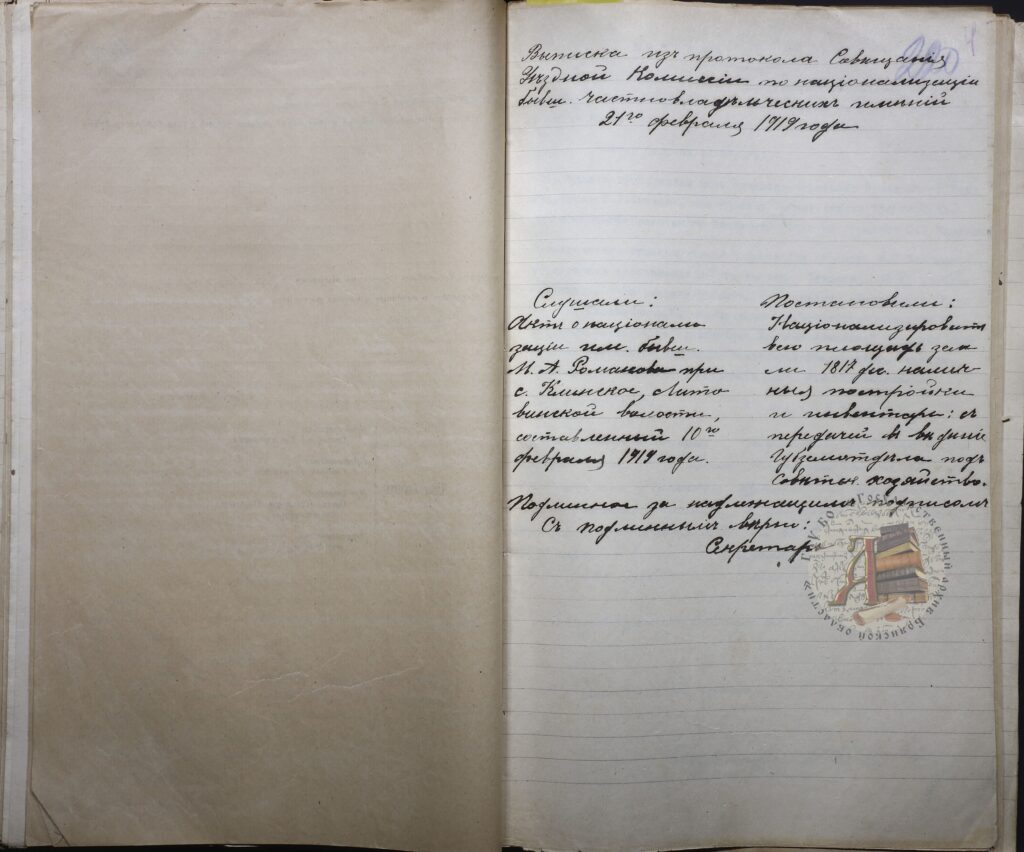 220 1
Выписка изъ протокола Совѣщанія
Уѣздной Комиссіи по націонализаціи
бывш. частновладѣльческихъ имѣній
21го февраля 1919 года
Слушали:
Актъ о национали
заціи им. бывш.
М. А. Романова при
с. Клинское, Лито
винской волости,
составленный 10го
февраля 1919 года.
Постановили:
Націонализировать
всю площадь зем
ли 1817 дес. налич
ныя постройки
и инвентарь: съ
передачей въ вѣдѣніе
Губземотдѣла подъ
Совѣтск. хозяйство.
Подлинное за надлежащимъ подписомъ
Съ подлиннымъ вѣрно:
Секретарь
ГКУ БО "Государственный архив Брянской области"